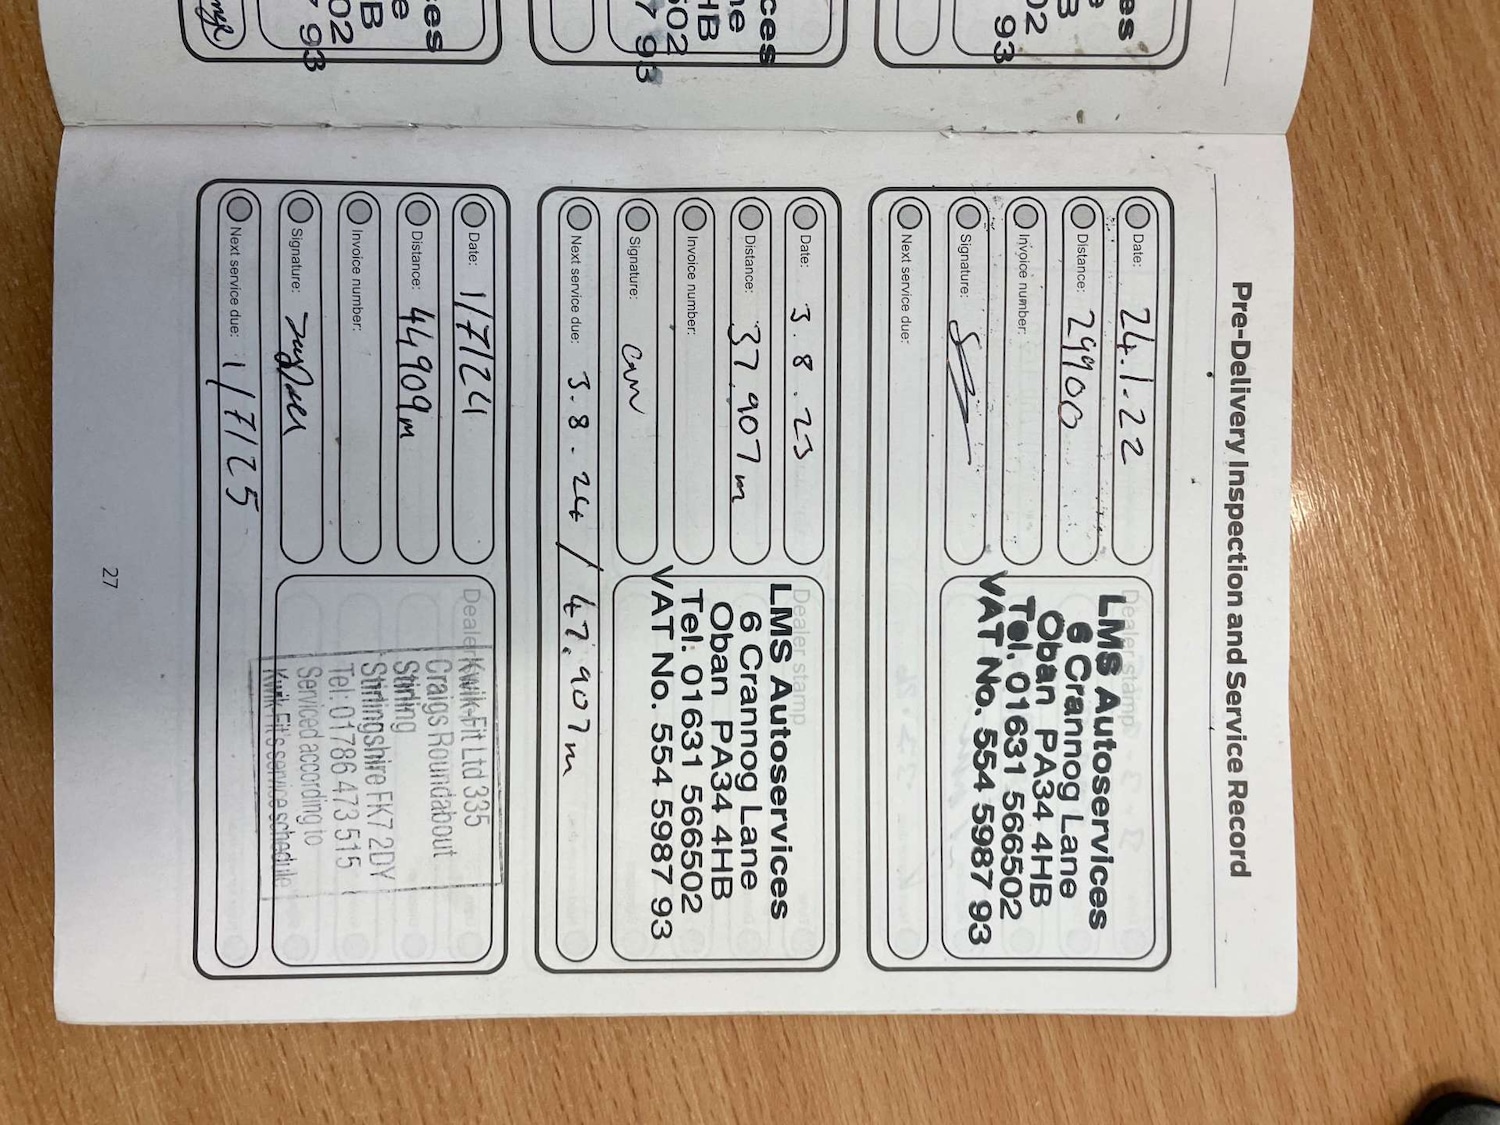 Pre-Delivery Inspection and Service Record
Date: 24.1.22
Distance: 29900
Invoice number:
Signature:
Next service due:
Dealer stamp
LMS Autoservices
6 Crannog Lane
Oban PA34 4HB
Tel. 01631 566502
VAT No. 554 5987 93
Date: 3.8.23
Distance: 37.907m
Invoice number:
Signature:
Next service due: 3.8.24 / 47.907m
Dealer stamp
LMS Autoservices
6 Crannog Lane
Oban PA34 4HB
Tel. 01631 566502
VAT No. 554 5987 93
Date: 1/7/24
Distance: 44909m
Invoice number:
Signature:
Next service due: 1/7/25
Dealer
Kwik-Fit Ltd 335
Craigs Roundabout
Stirling
Stirlingshire FK7 2DY
Tel. 01786 473 515
Serviced according to
Kwik Fit's service schedule
27
ces
ne
HB
502
7 93